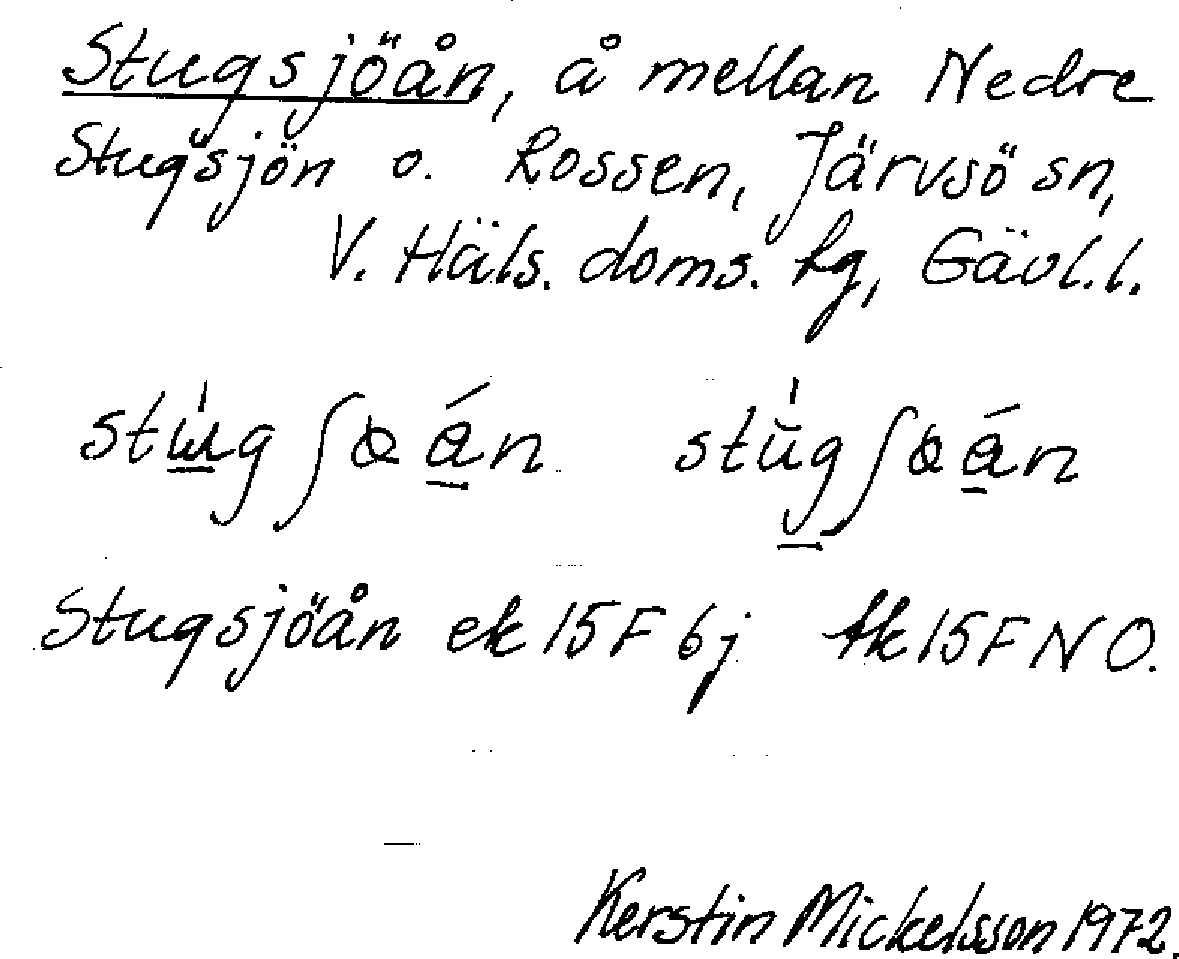 Stugsjöån, å mellan Nedre
Stugsjön o. Rossen, Järvsö sn,
V. Häls. doms. hg, Gävl.l.
Stugsjöån ek 15F 6j tk 15F NO.
Kerstin Mickelsson 1972.